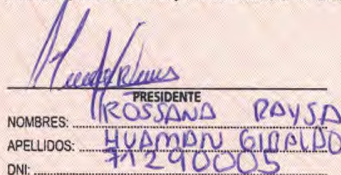 PRESIDENTE
NOMBRES: ROSSANA RAYSA
APELLIDOS: HUAMAN GIRALDO
DNI: 71290005